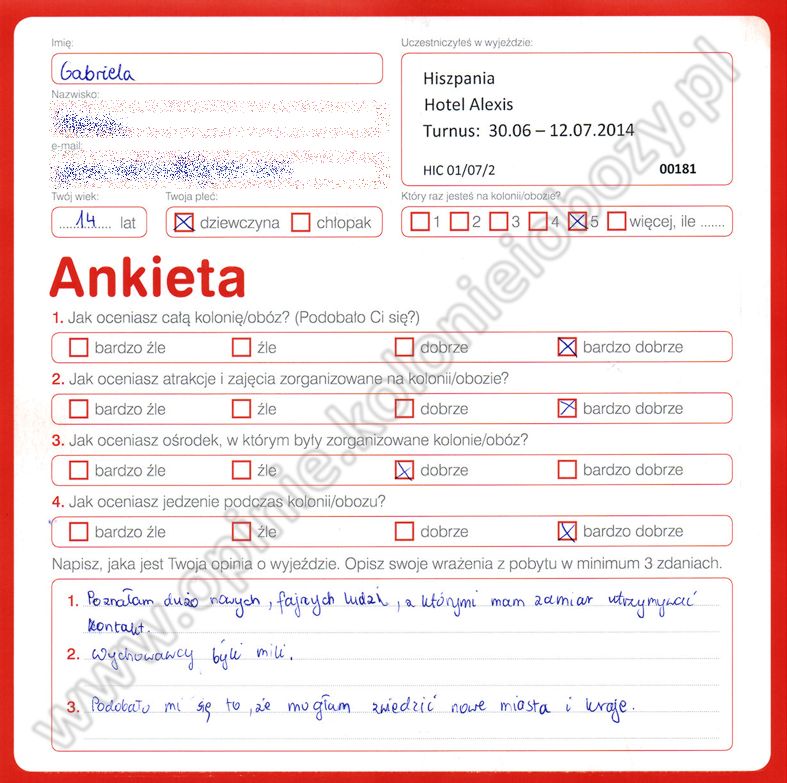 Imię:
Gabriela
Nazwisko:
e-mail:
Twój wiek:
14 lat
Twoja płeć:
dziewczyna chłopak
Uczestniczyłeś w wyjeździe:
Hiszpania
Hotel Alexis
Turnus: 30.06 – 12.07.2014
HIC 01/07/2 00181
Który raz jesteś na kolonii/obozie?
1 2 3 4 5 więcej, ile .......
Ankieta
1. Jak oceniasz całą kolonię/obóz? (Podobało Ci się?)
bardzo źle źle dobrze bardzo dobrze
2. Jak oceniasz atrakcje i zajęcia zorganizowane na kolonii/obozie?
bardzo źle źle dobrze bardzo dobrze
3. Jak oceniasz ośrodek, w którym były zorganizowane kolonie/obóz?
bardzo źle źle dobrze bardzo dobrze
4. Jak oceniasz jedzenie podczas kolonii/obozu?
bardzo źle źle dobrze bardzo dobrze
Napisz, jaka jest Twoja opinia o wyjeździe. Opisz swoje wrażenia z pobytu w minimum 3 zdaniach.
1. Poznałam dużo nowych, fajnych ludzi, z którymi mam zamiar utrzymywać
kontakt.
2. Wychowawcy byli mili.
3. Podobało mi się to, że mogłam zwiedzić nowe miasta i kraje.
www.opinie.kolonieiobozy.pl